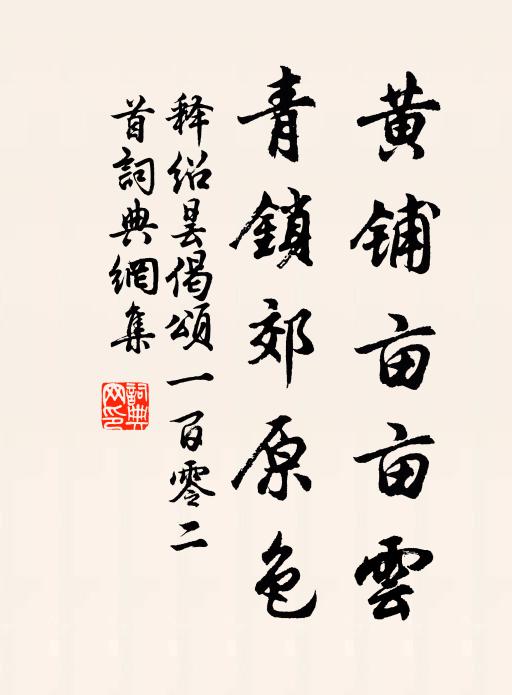 黄铺亩亩雲
青鎖郊原色
释绍昙偈頌一百零二
首詞典網集
詞典
网印